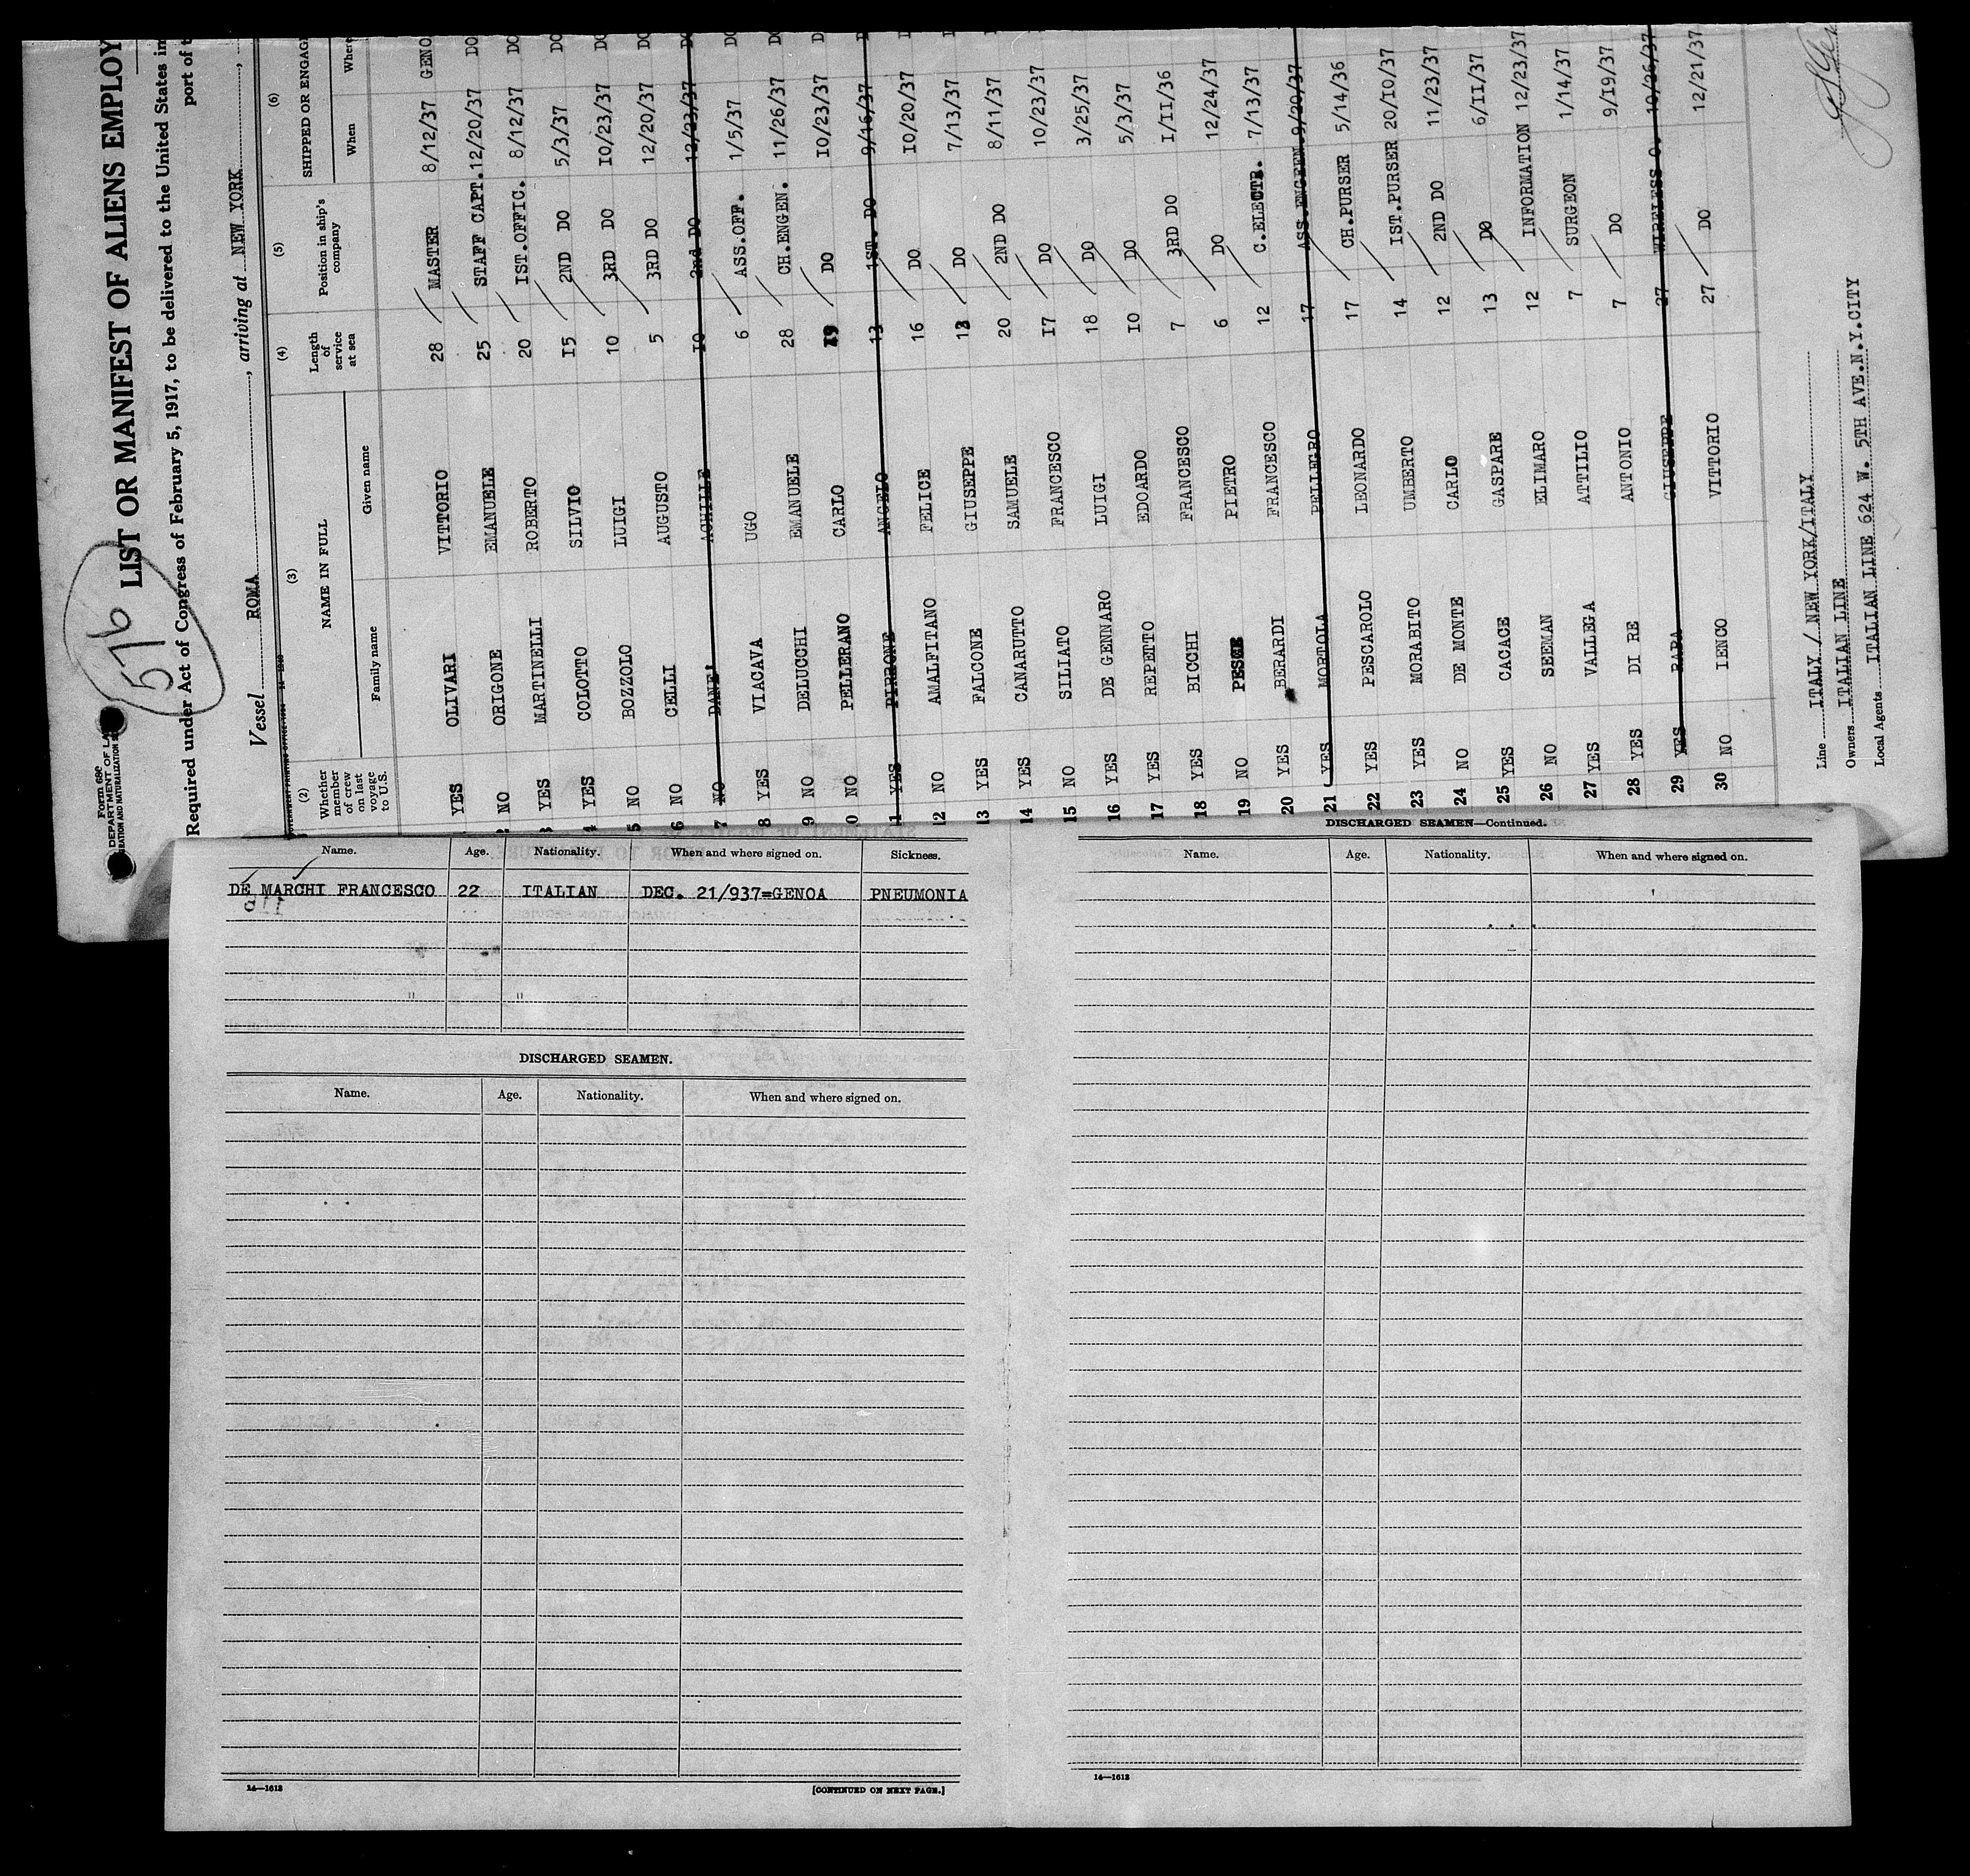 576
Form 680
DEPARTMENT OF LA
RATION AND NATURALIZATION
LIST OR MANIFEST OF ALIENS EMPLOY
Required under Act of Congress of February 5, 1917, to be delivered to the United States in
port of t
Vessel ROMA, arriving at NEW YORK,
(2) (3) (4) (5) (6)
Whether member of crew on last voyage to U.S. NAME IN FULL Length of service at sea Position in ship's company SHIPPED OR ENGAGE
Family name Given name When Where
YES OLIVARI VITTORIO 28 MASTER 8/12/37 GENO
2 NO ORIGONE EMANUELE 25 STAFF CAPT. 12/20/37 DO
3 YES MARTINELLI ROBERTO 20 IST.OFFIC. 8/12/37 DO
4 YES COLOTTO SILVIO I5 2ND DO 5/3/37 DO
5 NO BOZZOLO LUIGI 10 3RD DO IO/23/37 DO
6 NO CELLI AUGUSTO 5 3RD DO 12/20/37 DO
7 NO DANE' ACHILLE IO 2nd DO 12/23/37 DO
8 YES VIACAVA UGO 6 ASS.OFF. 1/5/37 DO
9 NO DELUCCHI EMANUELE 28 CH.ENGEN. 11/26/37 DO
0 NO PELLERANO CARLO 19 DO IO/23/37 D
1 YES PIRRONE ANGELO 13 1ST. DO 9/16/37 D
12 NO AMALFITANO FELICE 16 DO IO/20/37 D
13 YES FALCONE GIUSEPPE 13 DO 7/13/37
14 YES CANARUTTO SAMUELE 20 2ND DO 8/11/37
15 NO SILIATO FRANCESCO I7 DO 10/23/37
16 YES DE GENNARO LUIGI 18 DO 3/25/37
17 YES REPETTO EDOARDO IO DO 5/3/37
18 YES BICCHI FRANCESCO 7 3RD DO I/II/36
19 NO PESCE PIETRO 6 DO 12/24/37
20 YES BERARDI FRANCESCO 12 C.ELECTR. 7/13/37
21 YES MORTOLA PELLEGRO 17 ASS.ENGEEN. 9/20/37
22 YES PESCAROLO LEONARDO 17 CH.PURSER 5/14/36
23 YES MORABITO UMBERTO 14 IST.PURSER 20/IO/37
24 NO DE MONTE CARLO 12 2ND DO 11/23/37
25 YES CACACE GASPARE 13 DO 6/II/37
26 NO SEEMAN ELIMARO 12 INFORMATION 12/23/37
27 YES VALLEGA ATTILIO 7 SURGEON 1/14/37
28 YES DI RE ANTONIO 7 DO 9/19/37
29 YES PAPA GIUSEPPE 27 WIRELESS O. 10/26/37
30 NO IENCO VITTORIO 27 DO 12/21/37
Line ITALY / NEW YORK/ITALY
Owners ITALIAN LINE
Local Agents ITALIAN LINE 624 W. 5TH AVE.N.Y.CITY
Name. Age. Nationality. When and where signed on. Sickness.
DE MARCHI FRANCESCO 22 ITALIAN DEC. 21/937=GENOA PNEUMONIA
" "
DISCHARGED SEAMEN.
Name. Age. Nationality. When and where signed on.
14—1613
[CONTINUED ON NEXT PAGE.]
DISCHARGED SEAMEN—Continued.
Name. Age. Nationality. When and where signed on.
14—1613